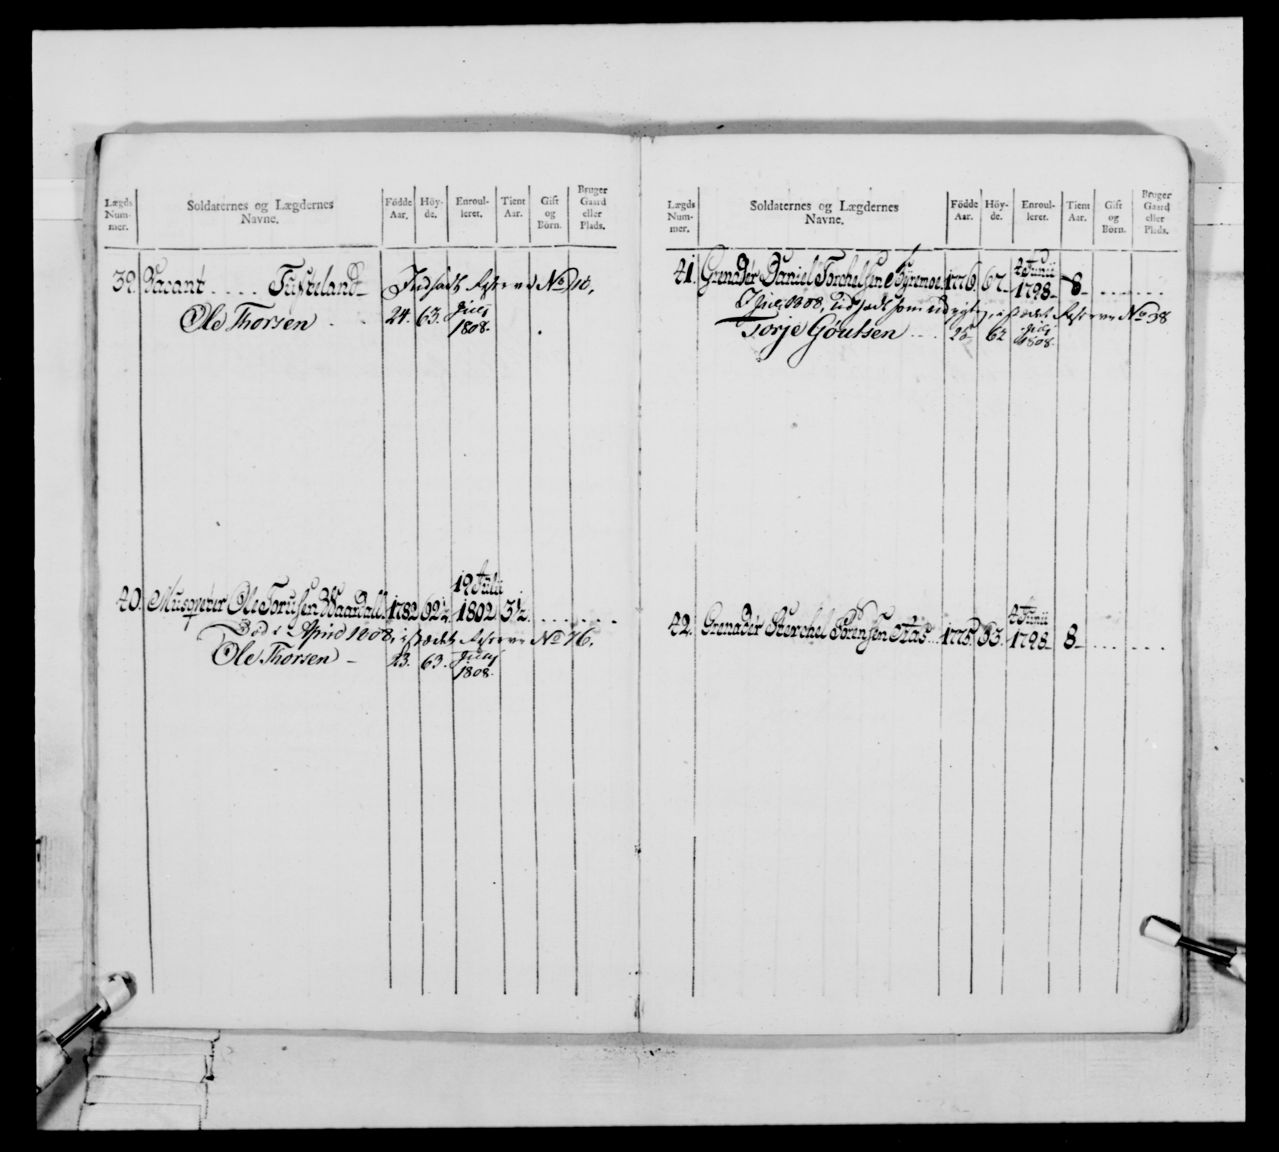 Lægds Num- mer. Soldaternes og Lægdernes Navne. Fødde Aar. Höy- de. Enroul- leret. Tient Aar. Gift og Börn. Bruger Gaard eller Plads.
39. Vacant .... Tufteland Indsadt Reserve No 10.
Ole Thorsen 24. 63. Julj 1808.
40. Musqveter Ole Torusen Waardall. 1782 62½ 19 Julii 1802 3½
Död i April 1808, istædet Reserve No 16.
Ole Thorsen 23. 63. Julj 1808.
Lægds Num- mer. Soldaternes og Lægdernes Navne. Fødde Aar. Höy- de. Enroul- leret. Tient Aar. Gift og Börn. Bruger Gaard eller Plads.
41. Grenadér Daniel Torchelsen 1776. 67. 4 Junii 1798. 8.
1808, som istædet Reserve No 38
Torje Göutsen .... 62 Julj 1808.
42. Grenadér Sörensen Stas... 1775. 63. 4 Junii 1798. 8.